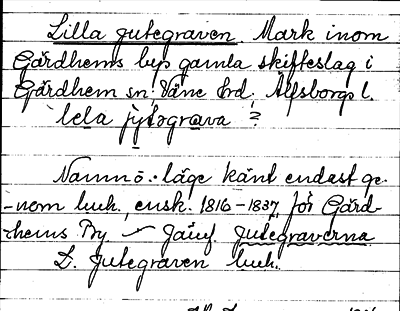 Lilla Jutegraven. Mark inom
Gärdhems bys gamla skifteslag i
Gärdhem sn, Väne hd, Älfsborgs l.
lela jytəgrava ?
Namn o. läge känt endast ge-
-nom luh., ensk. 1816-1837, för Gärd-
-hems By. — Jämf. Jutegraverna
L. Jutegraven luh.